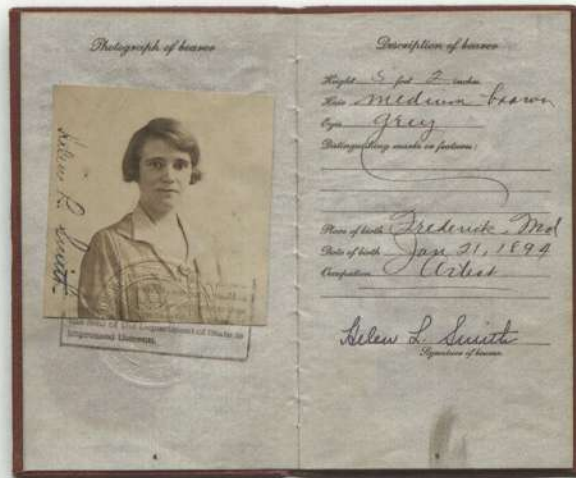 Photograph of bearer
Helen L. Smith
the seal of the Department of State is
impressed thereon.
4
Description of bearer
Height 5 feet 2 inches
Hair medium brown
Eyes grey
Distinguishing marks or features:
Place of birth Frederick, Md
Date of birth Jan 21, 1894
Occupation Artist
Helen L. Smith
Signature of bearer